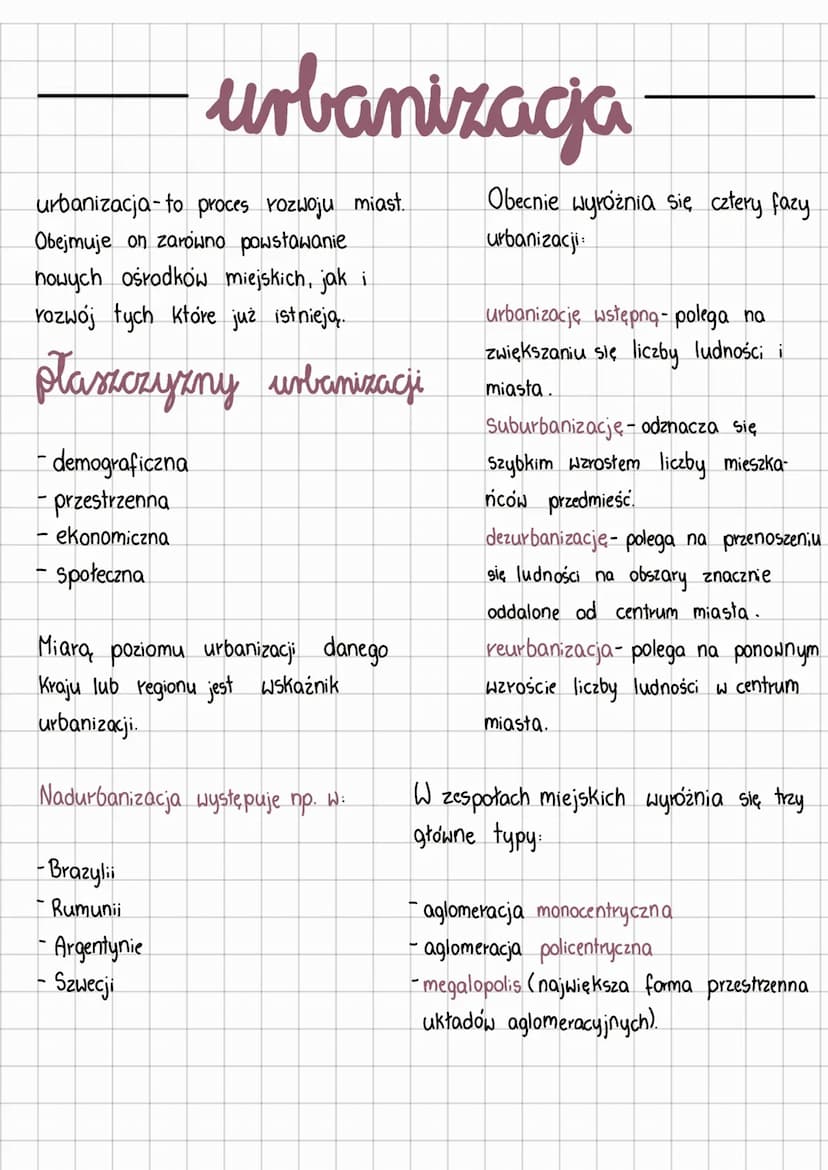 urbanizacja
urbanizacja- to proces rozwoju miast.
Obejmuje on zarówno powstawanie
nowych ośrodków miejskich, jak i
rozwój tych które już istnieją.
płaszczyzny urbanizacji
- demograficzna
- przestrzenna
- ekonomiczna
- społeczna
Miarą poziomu urbanizacji danego
kraju lub regionu jest wskaźnik
urbanizacji.
Nadurbanizacja występuje np. w:
- Brazylii
- Rumunii
- Argentynie
- Szwecji
Obecnie wyróżnia się cztery fazy
urbanizacji:
urbanizację wstępną- polega na
zwiększaniu się liczby ludności i
miasta.
suburbanizację- odznacza się
szybkim wzrostem liczby mieszka-
ńców przedmieść.
dezurbanizację- polega na przenoszeniu
się ludności na obszary znacznie
oddalone od centrum miasta.
reurbanizacja- polega na ponownym
wzroście liczby ludności w centrum
miasta.
W zespołach miejskich wyróżnia się trzy
główne typy:
- aglomeracja monocentryczna
- aglomeracja policentryczna
- megalopolis (największa forma przestrzenna
układów aglomeracyjnych).